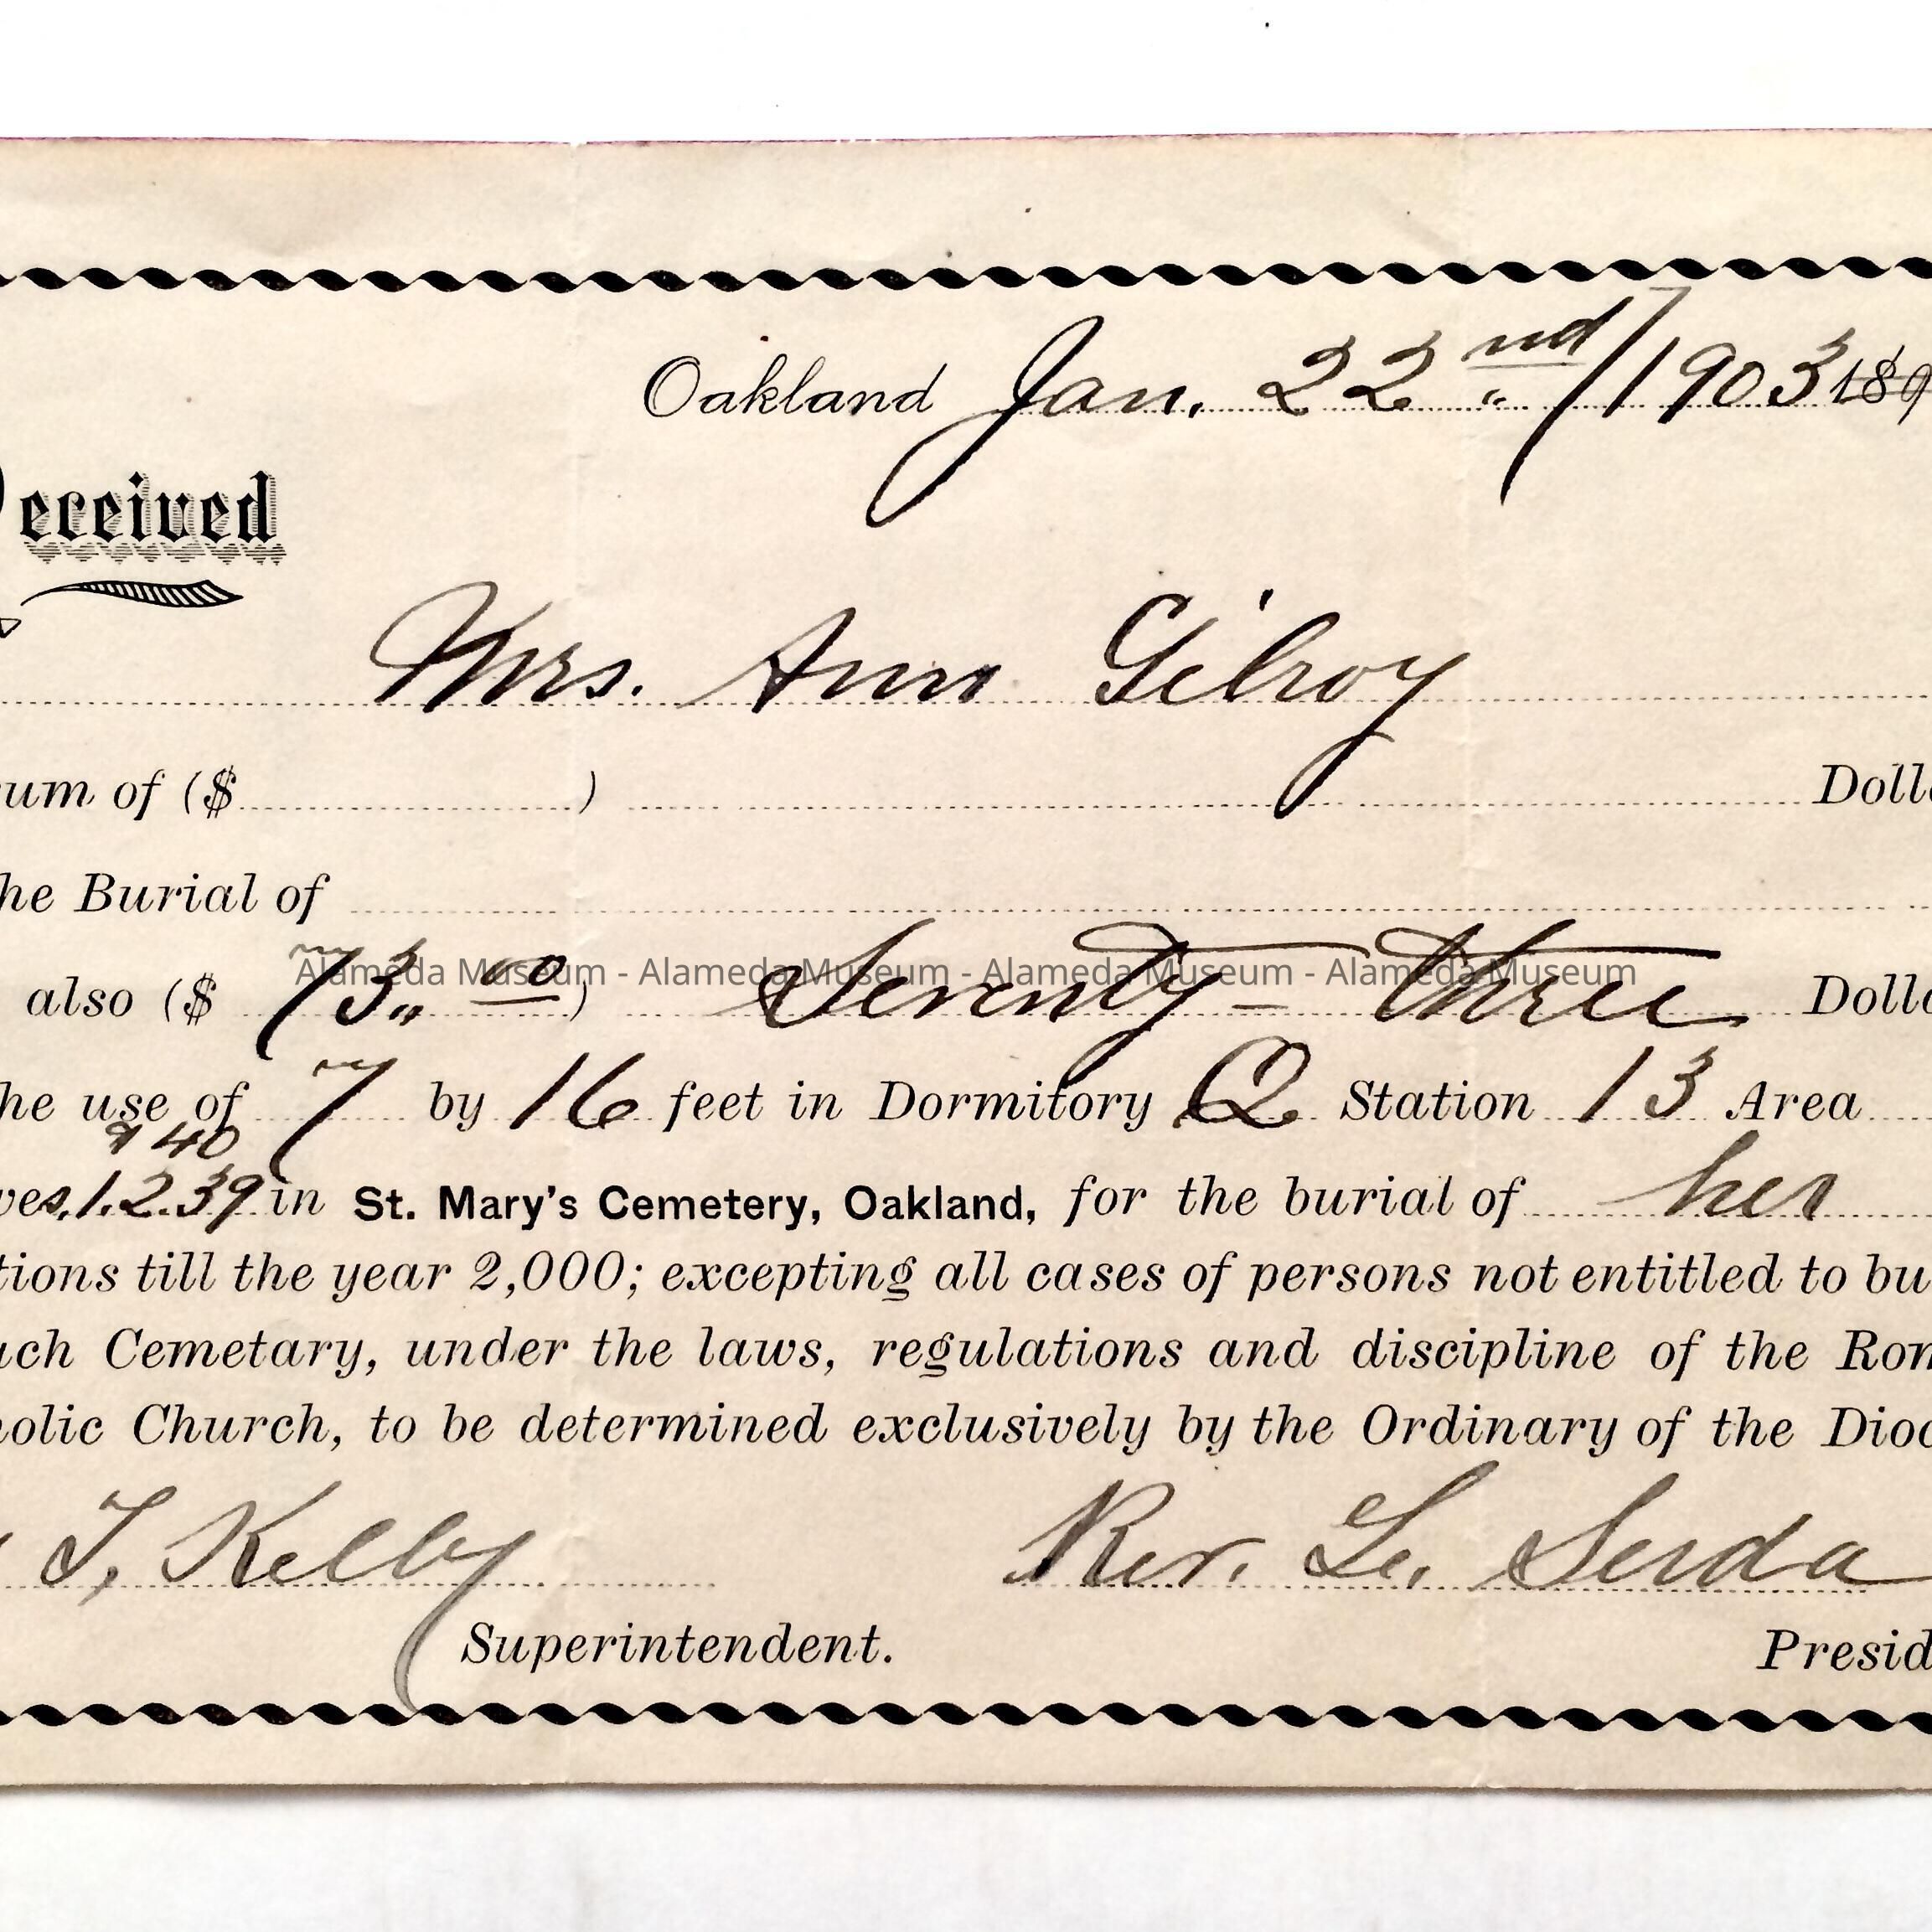 Oakland Jan. 22nd/1903 189
eceived
Mrs. Ann Gilroy
um of ($ ) Doll
he Burial of
Alameda Museum - Alameda Museum - Alameda Museum - Alameda Museum
also ($ 73.00) Seventy-three Doll
he use of 7 by 16 feet in Dormitory Q Station 13 Area
& 40
ves, 1.2.39 in St. Mary's Cemetery, Oakland, for the burial of her
tions till the year 2,000; excepting all cases of persons not entitled to bu
uch Cemetary, under the laws, regulations and discipline of the Rom
holic Church, to be determined exclusively by the Ordinary of the Dioc
T. Kelly Rev. L. Serda
Superintendent. Presid